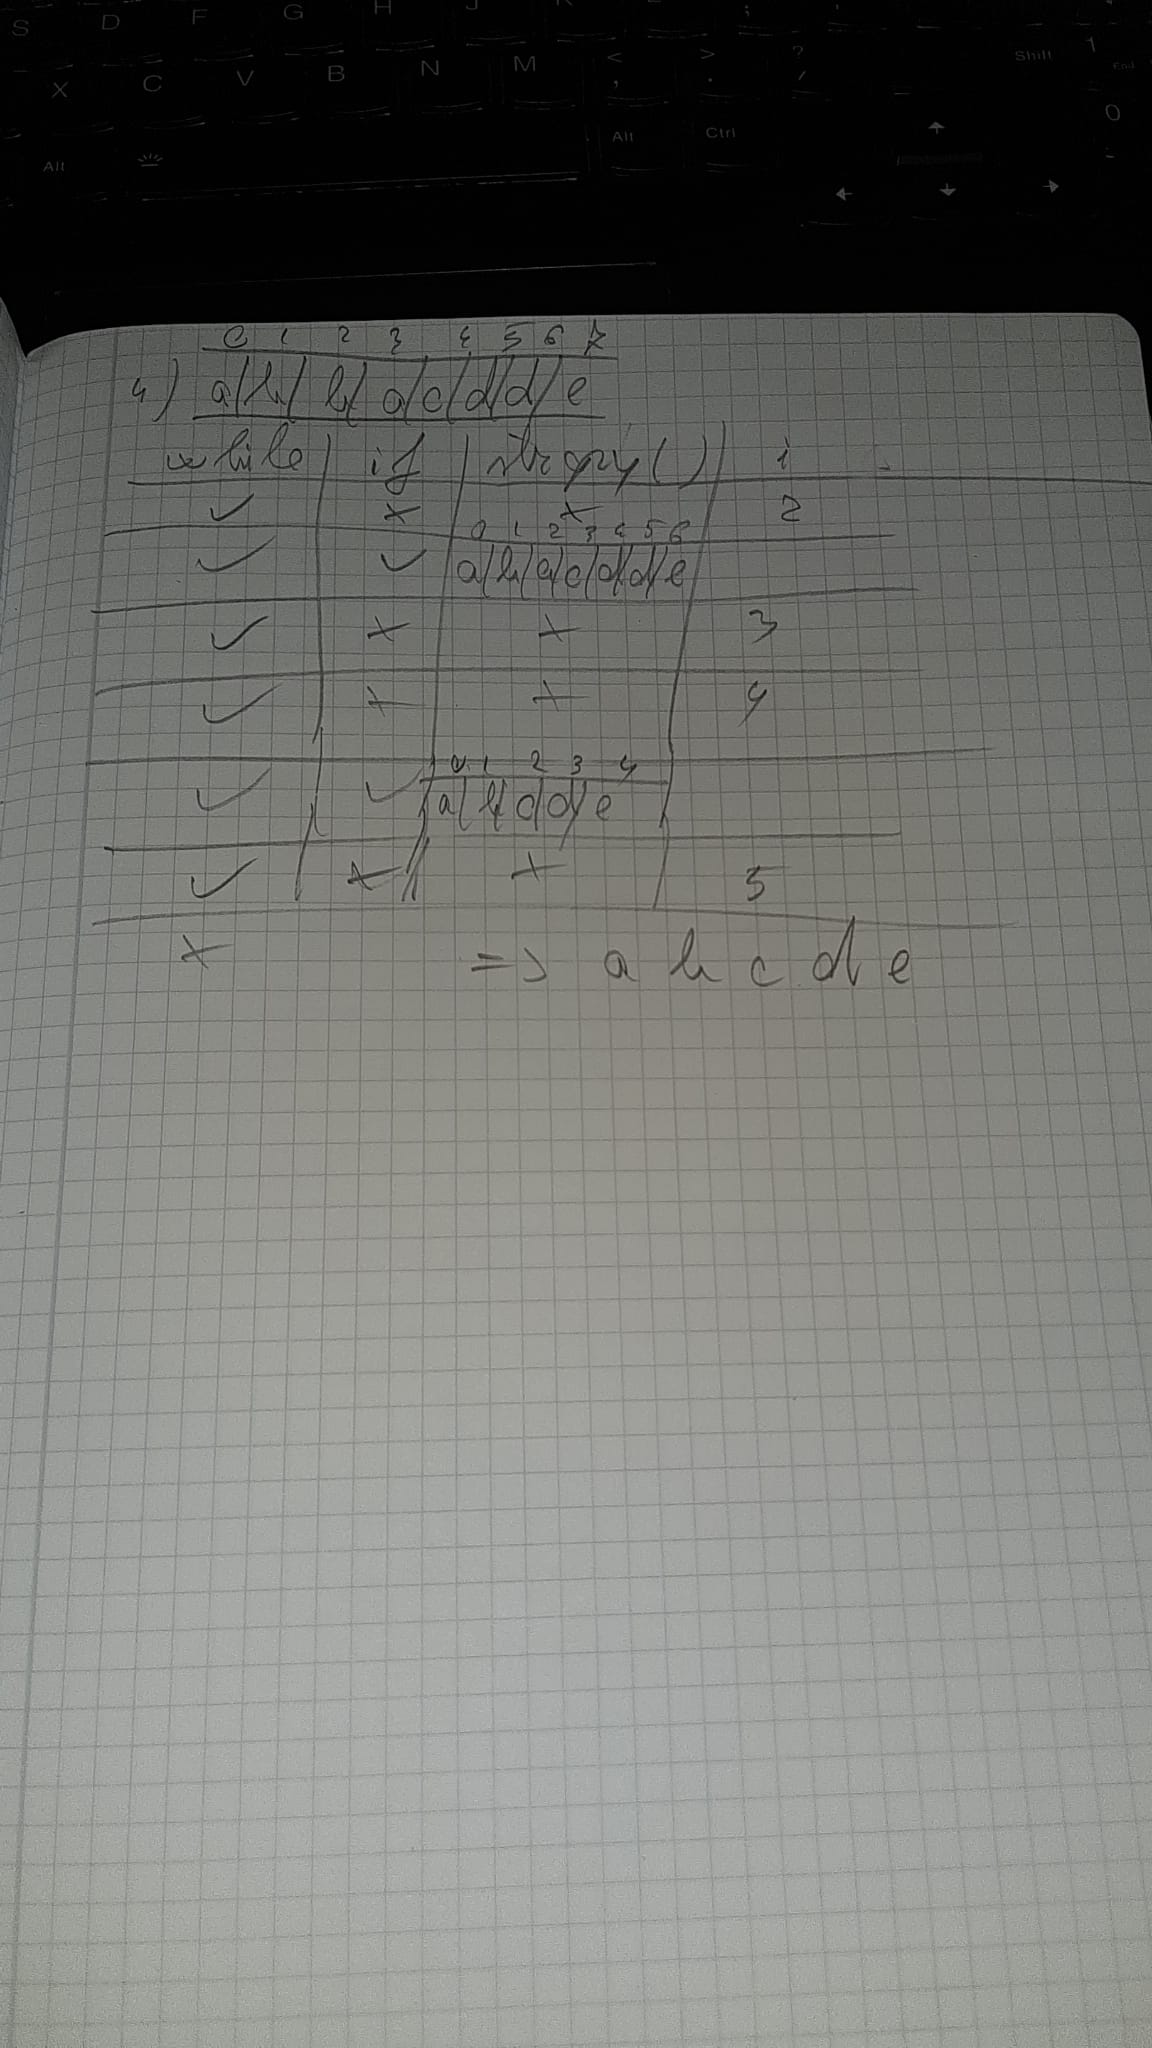 S D F G H J K ; '
X C V B N M < , > . ? / Shift 1 End
Alt Alt Ctrl 0
0 1 2 3 4 5 6 7
4) a/b/ b/ a/c/d/d/ e
while | if | strcpy() | i
✓ × × 2
0 1 2 3 4 5 6
✓ ✓ a/b/a/c/d/d/e
✓ × × 3
✓ × × 4
0 1 2 3 4
✓ ✓ a/b/c/d/e
✓ × × 5
× => a b c d e